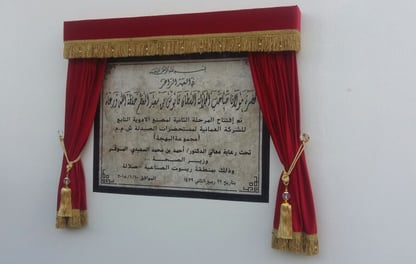 بسم الله الرحمن الرحيم
في العهد الزاهر
لحضرة مولانا صاحب الجلالة السلطان قابوس بن سعيد المعظم حفظه الله ورعاه
تم إفتتاح المرحلة الثانية لمصنع الأدوية التابع
للشركة العمانية لمستحضرات الصيدلة ش.م.م
(مجموعة البهجة)
تحت رعاية معالي الدكتور/ أحمد بن محمد السعيدي الموقر
وزير الصحة
وذلك بمنطقة ريسوت الصناعية - صلالة
بتاريخ ٢٢ ربيع الثاني ١٤٣٩ الموافق ٢٠١٨/١/١٠